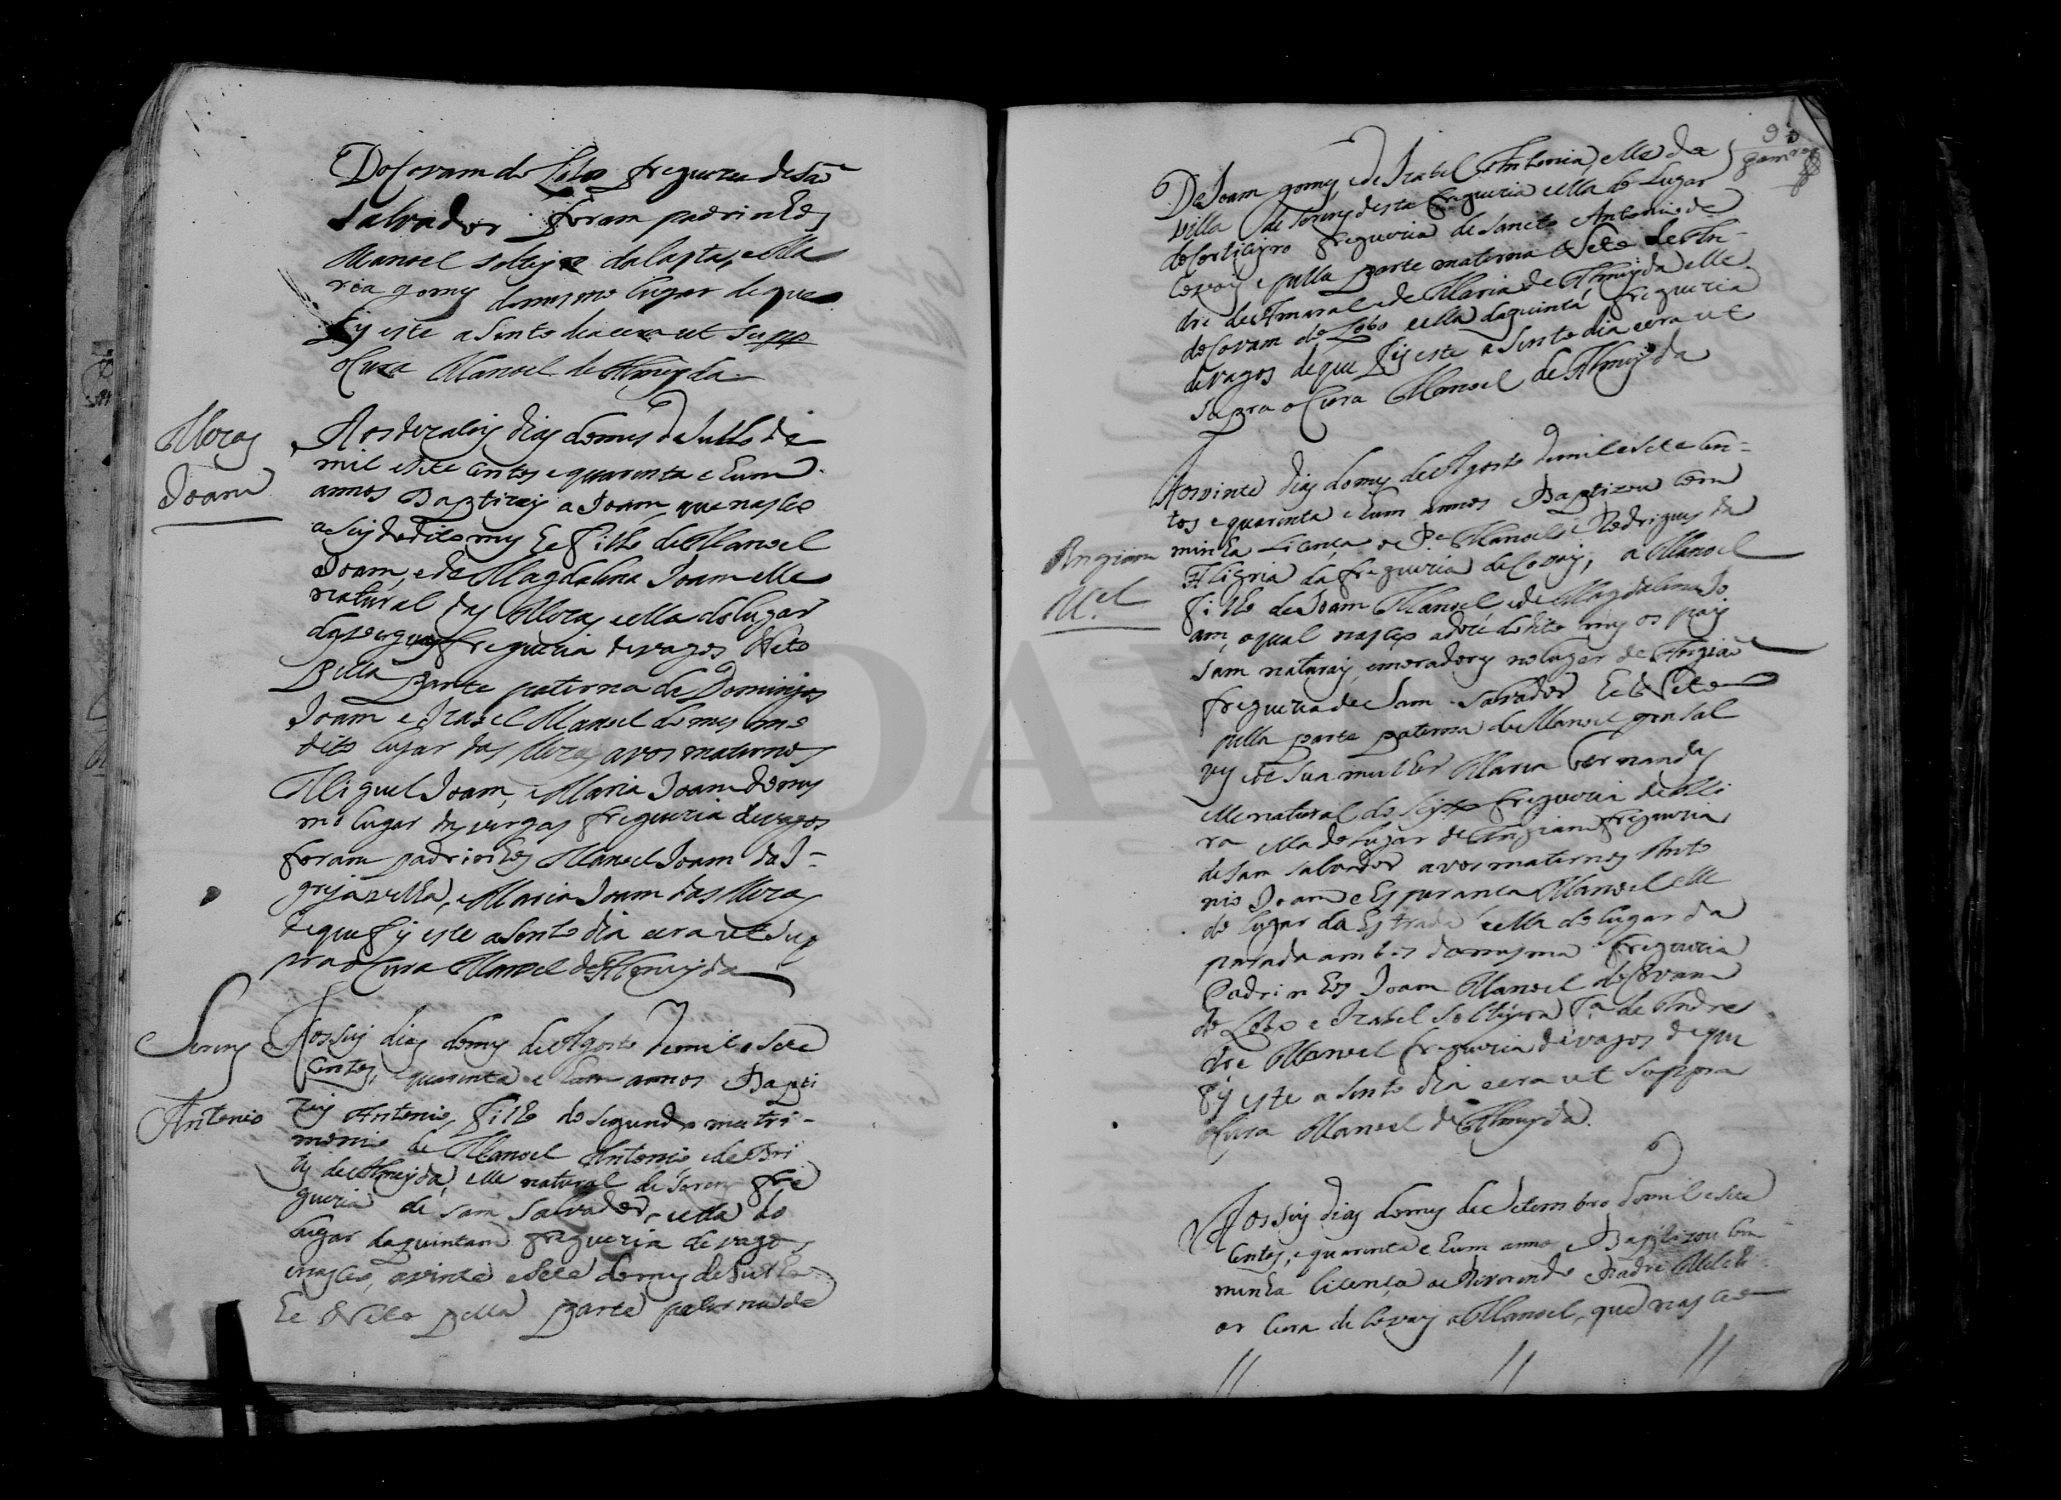 Do Covam do Lobo freguezia de Sam
Salvador foram padrinhos
Manoel Solteyro da Lapta, e Ma
ria gomes do mesmo lugar de que
fiz este asento dia e era ut supp
o Cura Manoel de Almeyda
Mezas
Joam
Aos dezaseis dias do mes de Julho de
mil e sete centos e quarenta e hum
annos Baptizey a Joam, que nasceo
a seis do dito mes he filho de Manoel
Joam, e de Magdalina Joam elle
natural das Mezas e ella do lugar
das vergas freguezia de vagos Neto
pella parte paterna de Domingos
Joam e Izabel Manoel do mesmo
dito lugar das Mezas avos maternos
Miguel Joam, e Maria Joam do mes
mo lugar das vergas freguezia de vagos
foram padrinhos Manoel Joam da I-
greja velha, e Maria Joam das Mezas
de que fiz este asento dia e era ut sup
pra o Cura Manoel de Almeyda
Sorens
Antonio
Aos seis dias do mes de Agosto de mil e sete
centos, e quarenta e hum annos Bapti
zey Antonio, filho do segundo matri-
monio de Manoel Antonio e de Bri
tis de Almeyda, elle natural de Soren fre
guezia de Sam Salvador, e ella do
lugar da quintam freguezia de vagos
e nasceo, a vinte e sete do mes de Julho
he Neto pella parte paterna de
De Joam gomes e de Izabel Antonia, elle da
villa de Sorens desta freguezia e ella do lugar
do Corticeyro freguezia de Sancto Antonio de
Covois e pella parte materna Neto de An-
dre de Amaral e de Maria de Almeyda elle
do Covam do Lobo e ella da quinta freguezia
de vagos de que fiz este asento dia e era ut
supra o Cura Manoel de Almeyda
Angiam
M.el
Aos vinte dias do mes de Agosto de mil e sete cen-
tos e quarenta e hum annos Baptizou com
minha Licença o P.e Manoel Rodrigues da
Alegria da freguezia de Covois, a Manoel
filho de Joam Manoel e de Magdalena Jo
am, o qual nasceo a doze do dito mes os pais
sam naturais, e moradores no lugar de Angiam
freguezia de Sam Salvador he Neto
pella parte paterna de Manoel gonsal
ves e de sua mulher Maria Fernandes
elle natural do Seixo freguezia de Mi
ra ella do lugar de Angiam freguezia
de Sam Salvador avos maternos Anto
nio Joam e Esperanca Manoel elle
do lugar da Estrada e ella do lugar da
parada ambos da mesma freguezia
Padrinhos Joam Manoel do Covam
do Lobo e Izabel Solteyra f.a de Andre
Manoel freguezia de vagos de que
fiz este asento dia e era ut suppra
o Cura Manoel de Almeyda.
Aos seis dias do mes de Setembro de mil e sete
centos, e quarenta e hum annos Baptizou com
minha licença o Reverendo Padre Melchi
or Cura de Covois a Manoel, que nasceo